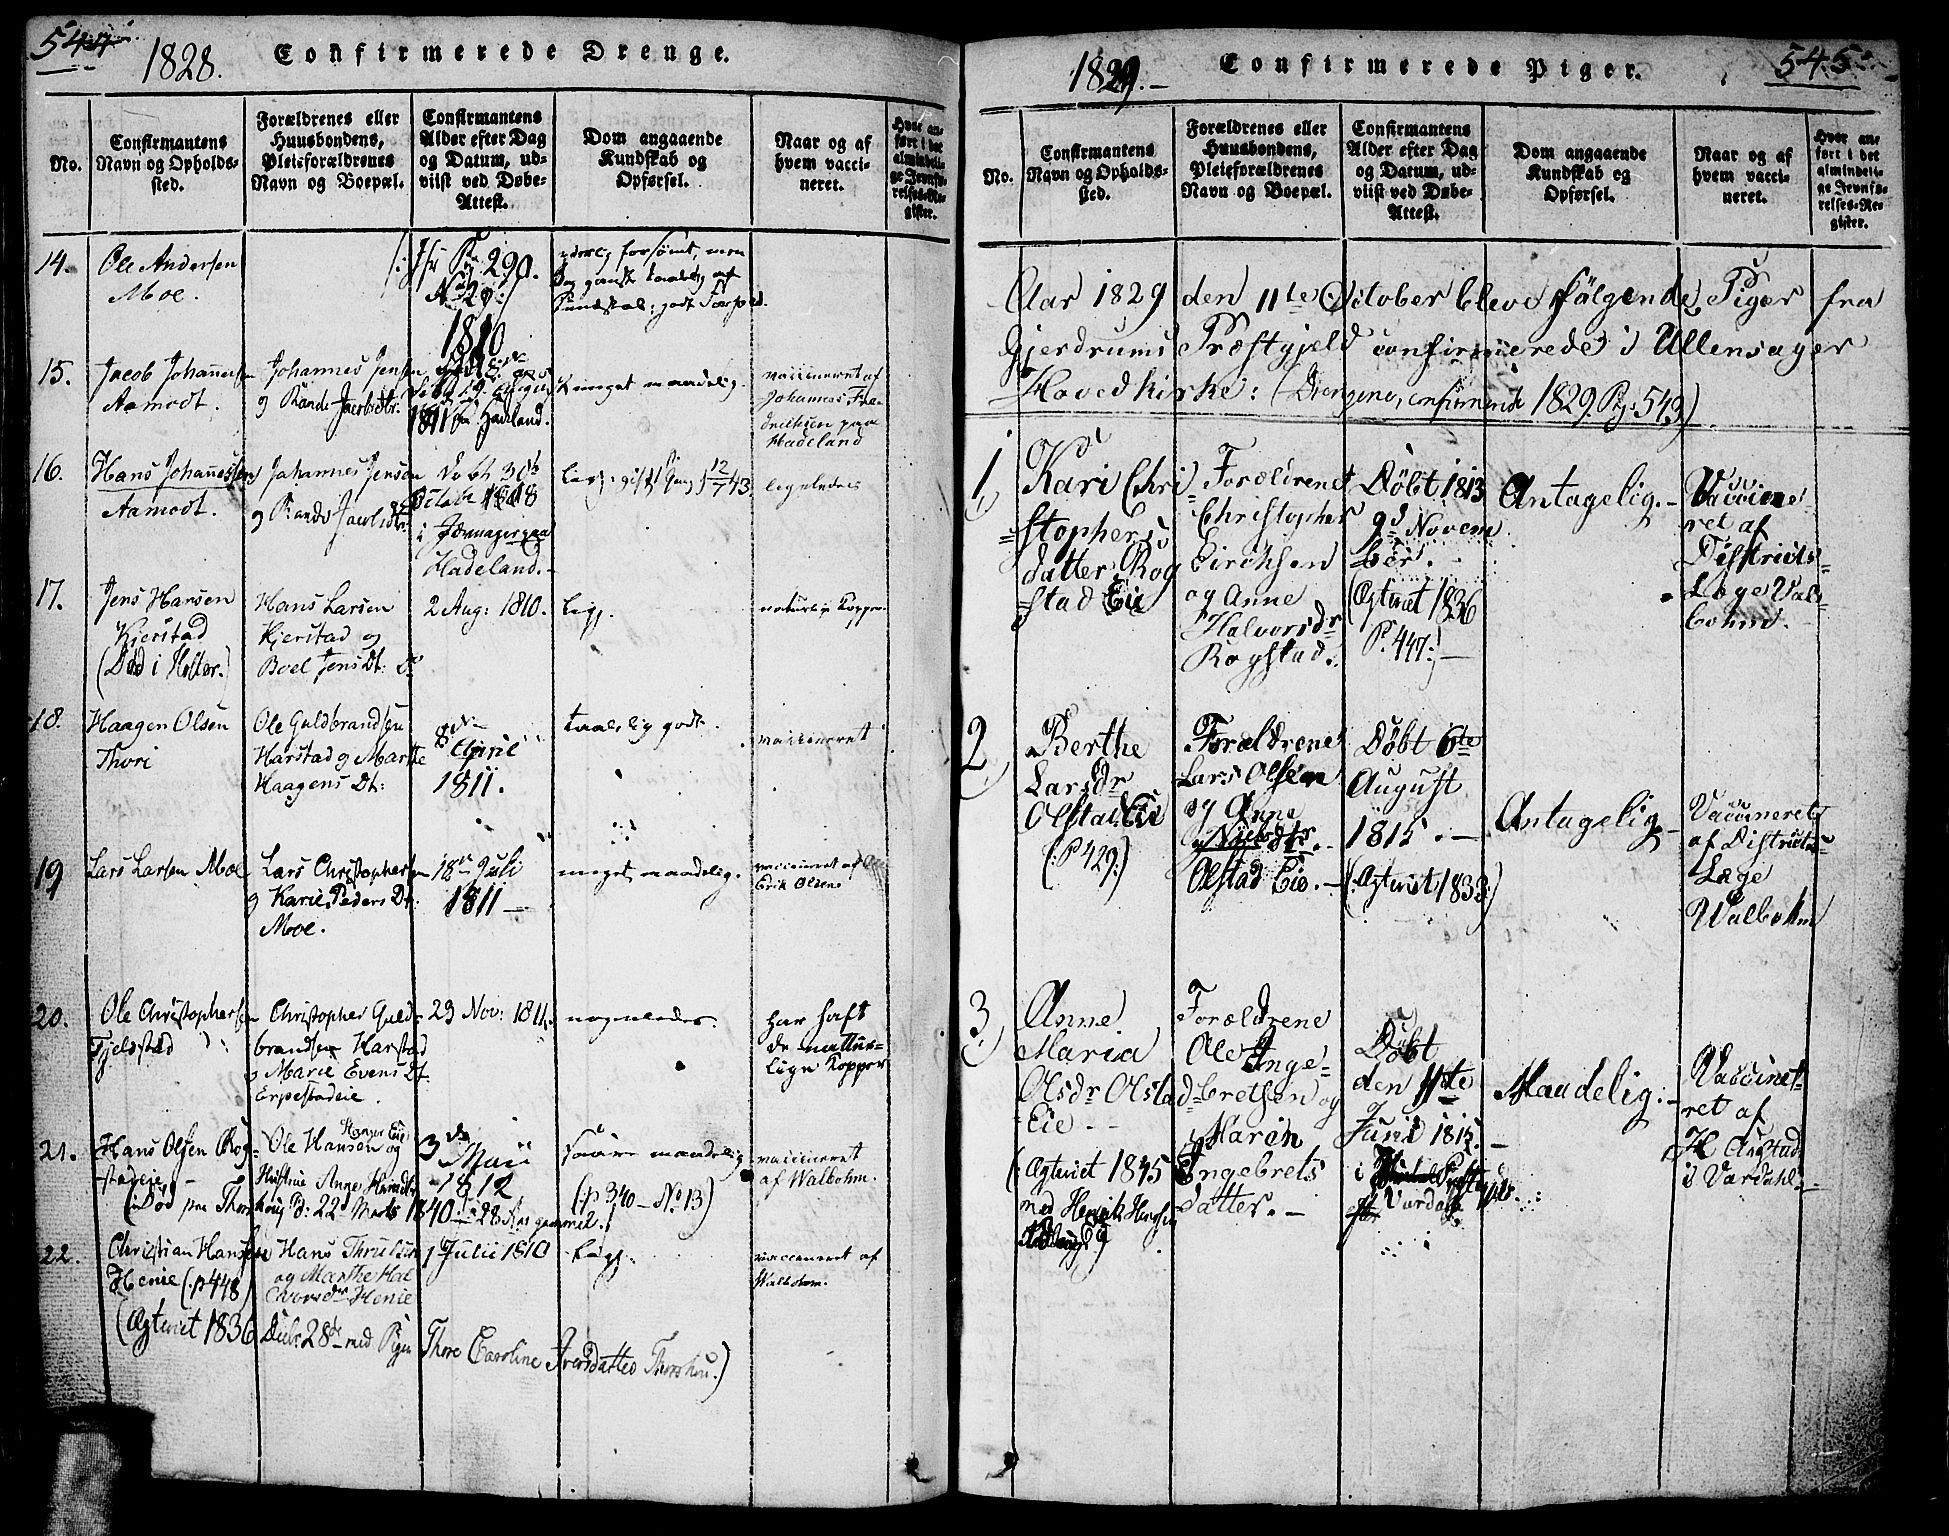 544
1828.
Confirmerede Drenge.
No.
Confirmantens
Navn og Opholds-
sted.
Forældrenes eller
Huusbondens,
Pleieforældrenes
Navn og Boepæl.
Confirmantens
Alder efter Dag
og Datum, ud-
viist ved Døbe-
Attest.
Dom angaaende
Kundskab og
Opførsel.
Naar og af
hvem vacci-
neret.
Hvor an-
ført i det
almindeli-
ge Jevnfø-
relses-Re-
gister.
14.
Ole Andersen
Moe.
290.
No 29
forsømt, men
15.
Jacob Johannesen
Aamodt.
Johannes Jensen
og Rande Jacobsdtr.
1810
1811 Hadeland.
meget maadelig.
vaccineret af
Johannes
paa
Hadeland
16.
Hans Johannessen
Aamodt.
Johannes Jensen
og Rande Jacobsdtr
Døbt 30te
October 1808
i Jævnager paa
Hadeland.
ligeledes
17.
Jens Hansen
Kjerstad
Hans Larsen
Kjerstad og
Boel Jens Dt: Do
2 Aug: 1810.
ligs.
naturlig Kopper
18.
Haagen Olsen
Thori
Ole Guldbrandsen
Harstad og Marthe
Haagens Dt:
8de
April
1811.
taalelig godt.
vaccineret
19
Lars Larsen Moe
Lars Christophersen
og Karie Peders Dt:
Moe.
18de Juli
1811
meget maadelig.
vaccineret af
Erik Olsen
20.
Ole Christophersen
Tjeldstad
Christopher Guld-
brandsen Harstad
og Marie Evens Dt.
Erpestadeie.
23 Nov: 1811.
nogenledes.
har haft
de nattur-
lige Kopper
21.
Hans Olsen Rog-
stadeie
Ole Hansen og
Anne
3de
Maii
1812
saare maadelig
(p 340 - No 13)
vaccineret
af Walbohm.
(Død paa Thorshoug d: 22 Marts 1840 - 28 Aar gammel.)
22.
Christian Hansen
Henie (p 448)
Hans Thrulsen
og Marthe Hal
vorsdtr Henie
1 Julii 1810
ligs.
vaccineret af
Walbohm.
(Ægtviet 1836 28de med Pigen Thore Caroline Iversdatter Thorshou.)
1829.
Confirmerede Piger.
545
No.
Confirmantens
Navn og Opholds-
sted.
Forældrenes eller
Huusbondens,
Pleieforældrenes
Navn og Boepæl.
Confirmantens
Alder efter Dag
og Datum, ud-
viist ved Døbe-
Attest.
Dom angaaende
Kundskab og
Opførsel.
Naar og af
hvem vacci-
neret.
Hvor an-
ført i det
almindeli-
ge Jevnfø-
relses-Re-
gister.
Aar 1829 den 11te October bleve følgende Piger fra
Gjerdrums Præstgjeld confirmerede i Ullensager
Hovedkirke: (Drengene, confirmerede 1829. Pg: 543)
1
Kari Chri
stophers
datter Rog
stad Eie
Forældrene
Christopher
Erichsen
og Anne
Halvorsdr
Rogstad.
Døbt 1813
9d Novem
ber.
(Ægtviet 1836
P. 447:)
Antagelig.
Vaccine
ret af
Districts-
Læge Val-
bohm.
2
Berthe
Larsdr
Olstad Eie
(:P 429:)
Forældrene
Lars Olsen
og Anne
Nielsdtr
Olstad Eie.
Døbt 6te
August
1815.
(:Ægtviet 1833:)
Antagelig
Vaccineret
af Districts-
Læge
Walbohm
3
Anne
Maria
Olsdr Olstad
Eie
(Ægtviet 1845
med Henrik Hansen
Forældrene
Ole Inge-
bretsen og
Maren
Ingebrets
datter.
Døbt
den 11te
Juni 1815.
i
Vardal
Maadelig.
Vaccine-
ret af
H.
i Vardahl.